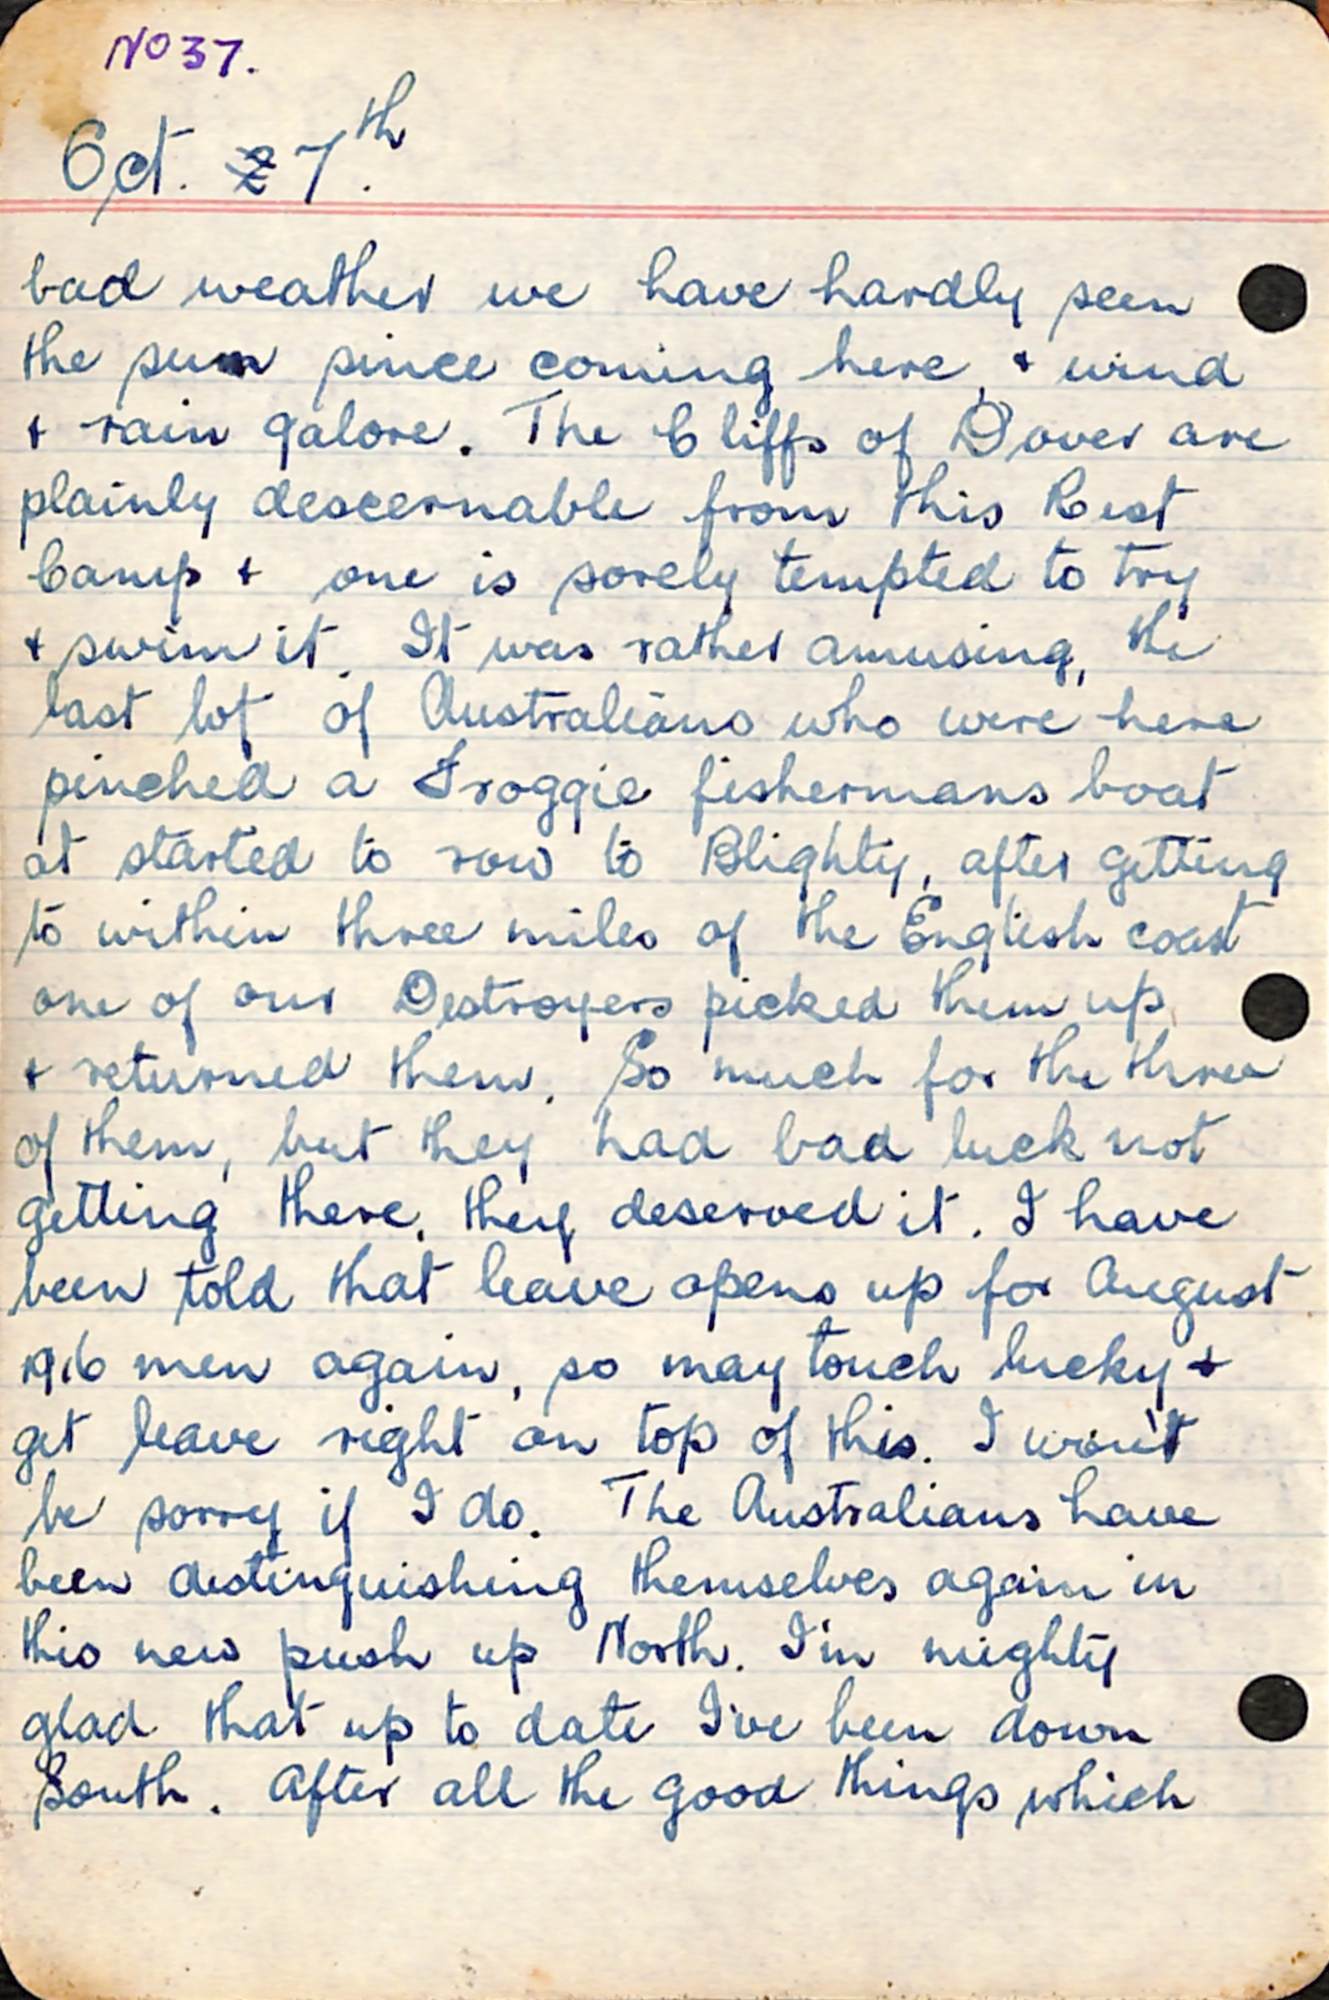 No 37.
Oct. 7th.
bad weather we have hardly seen
the sun since coming here, + wind
+ rain galore. The Cliffs of Dover are
plainly descernable from this Rest
Camp + one is sorely tempted to try
+ swim it. It was rather amusing, the
last lot of Australians who were here
pinched a Froggie fishermans boat
at started to row to Blighty, after getting
to within three miles of the English coast
one of our Destroyers picked them up
+ returned them. So much for the three
of them, but they had bad luck not
getting there, they deserved it. I have
been told that leave opens up for August
1916 men again, so may touch lucky +
get leave right on top of this. I won't
be sorry if I do. The Australians have
been distinguishing themselves again in
this new push up North. I'm mighty
glad that up to date I've been down
South. After all the good things which